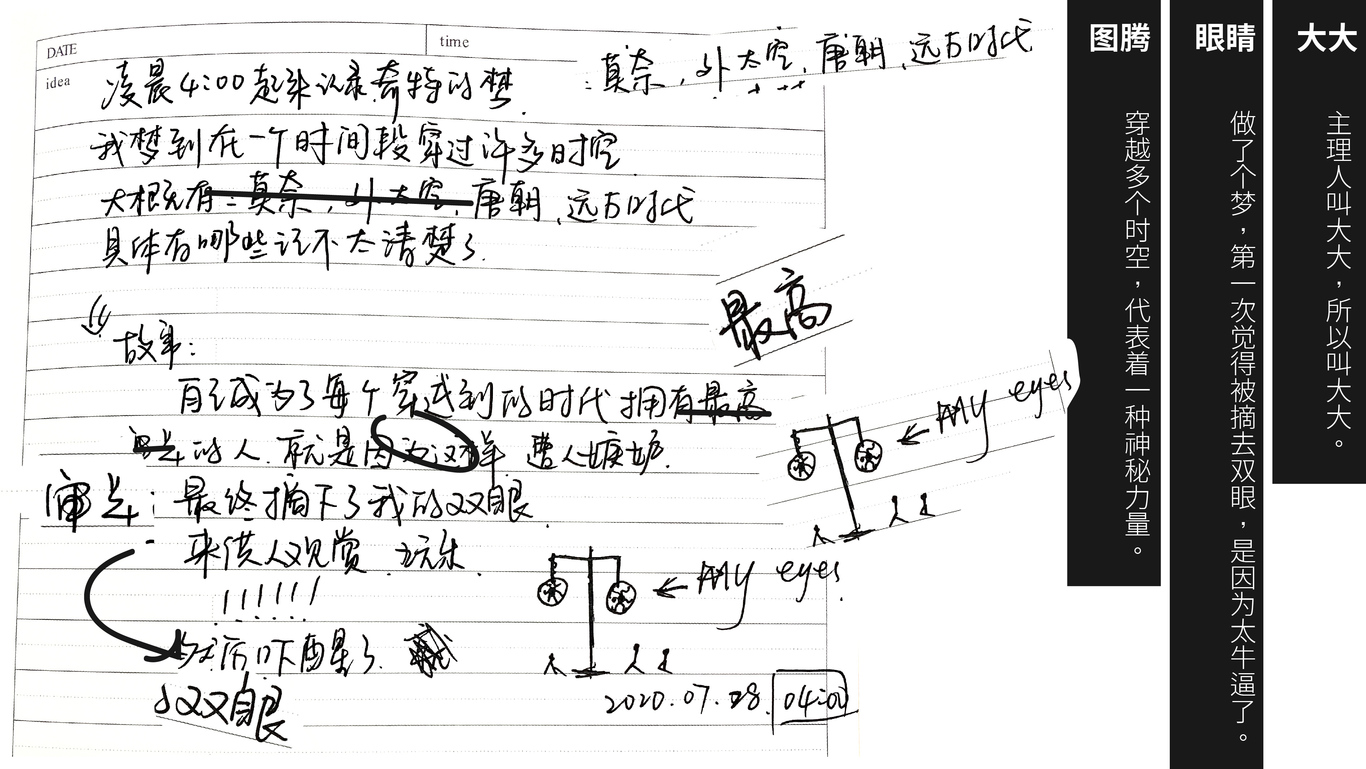 DATE
time
idea
凌晨4:00起来记录奇特的梦.
:莫奈,外太空,唐朝,远古时代
我梦到在一个时间段穿过许多时空
大概有:莫奈,外太空,唐朝,远古时代
具体有哪些记不太清楚了.
故事:
自己成为了每个穿越到的时代拥有最高
审美的人.就是因为这样 遭人嫉妒.
最高
审美:最终摘下了我的双眼.
来供人观赏.玩乐.
!!!!!!
然后吓醒了.
双眼
← MY eyes
← MY eyes.
2020.07.28. 04:00
图腾
穿越多个时空，代表着一种神秘力量。
眼睛
做了个梦，第一次觉得被摘去双眼，是因为太牛逼了。
大大
主理人叫大大，所以叫大大。